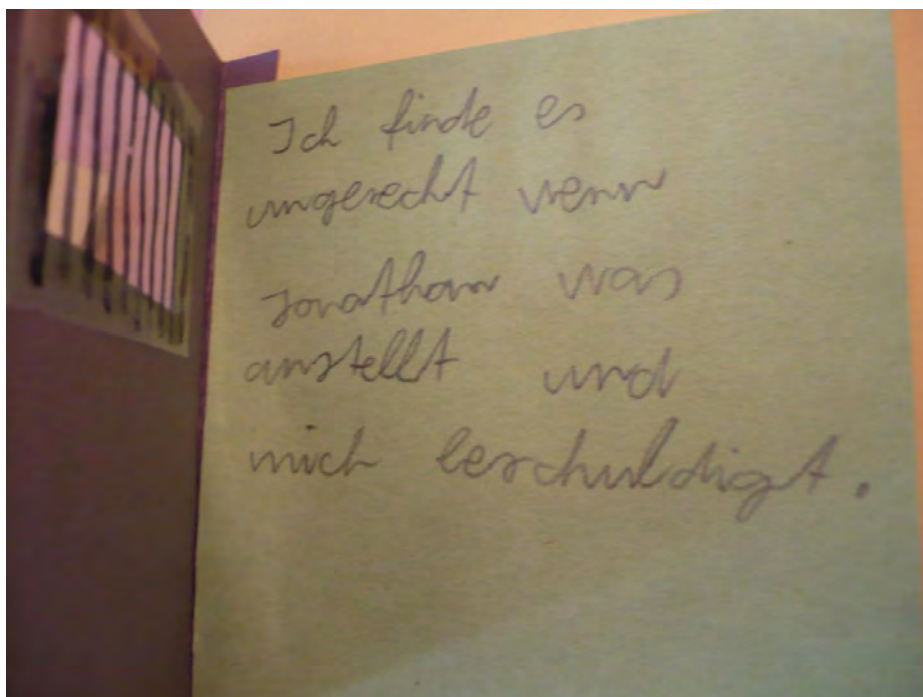 Ich finde es
ungerecht wenn
Jonathan was
anstellt und
mich beschuldigt.